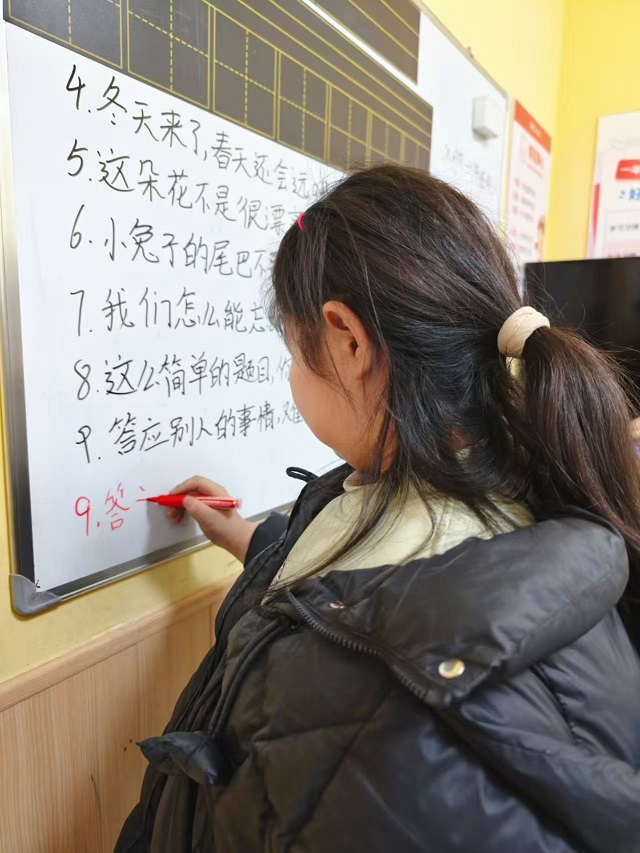 4.冬天来了,春天还会远
5.这朵花不是很漂
6.小兔子的尾巴不
7.我们怎么能忘
8.这么简单的题目,
9.答应别人的事情,
9.答